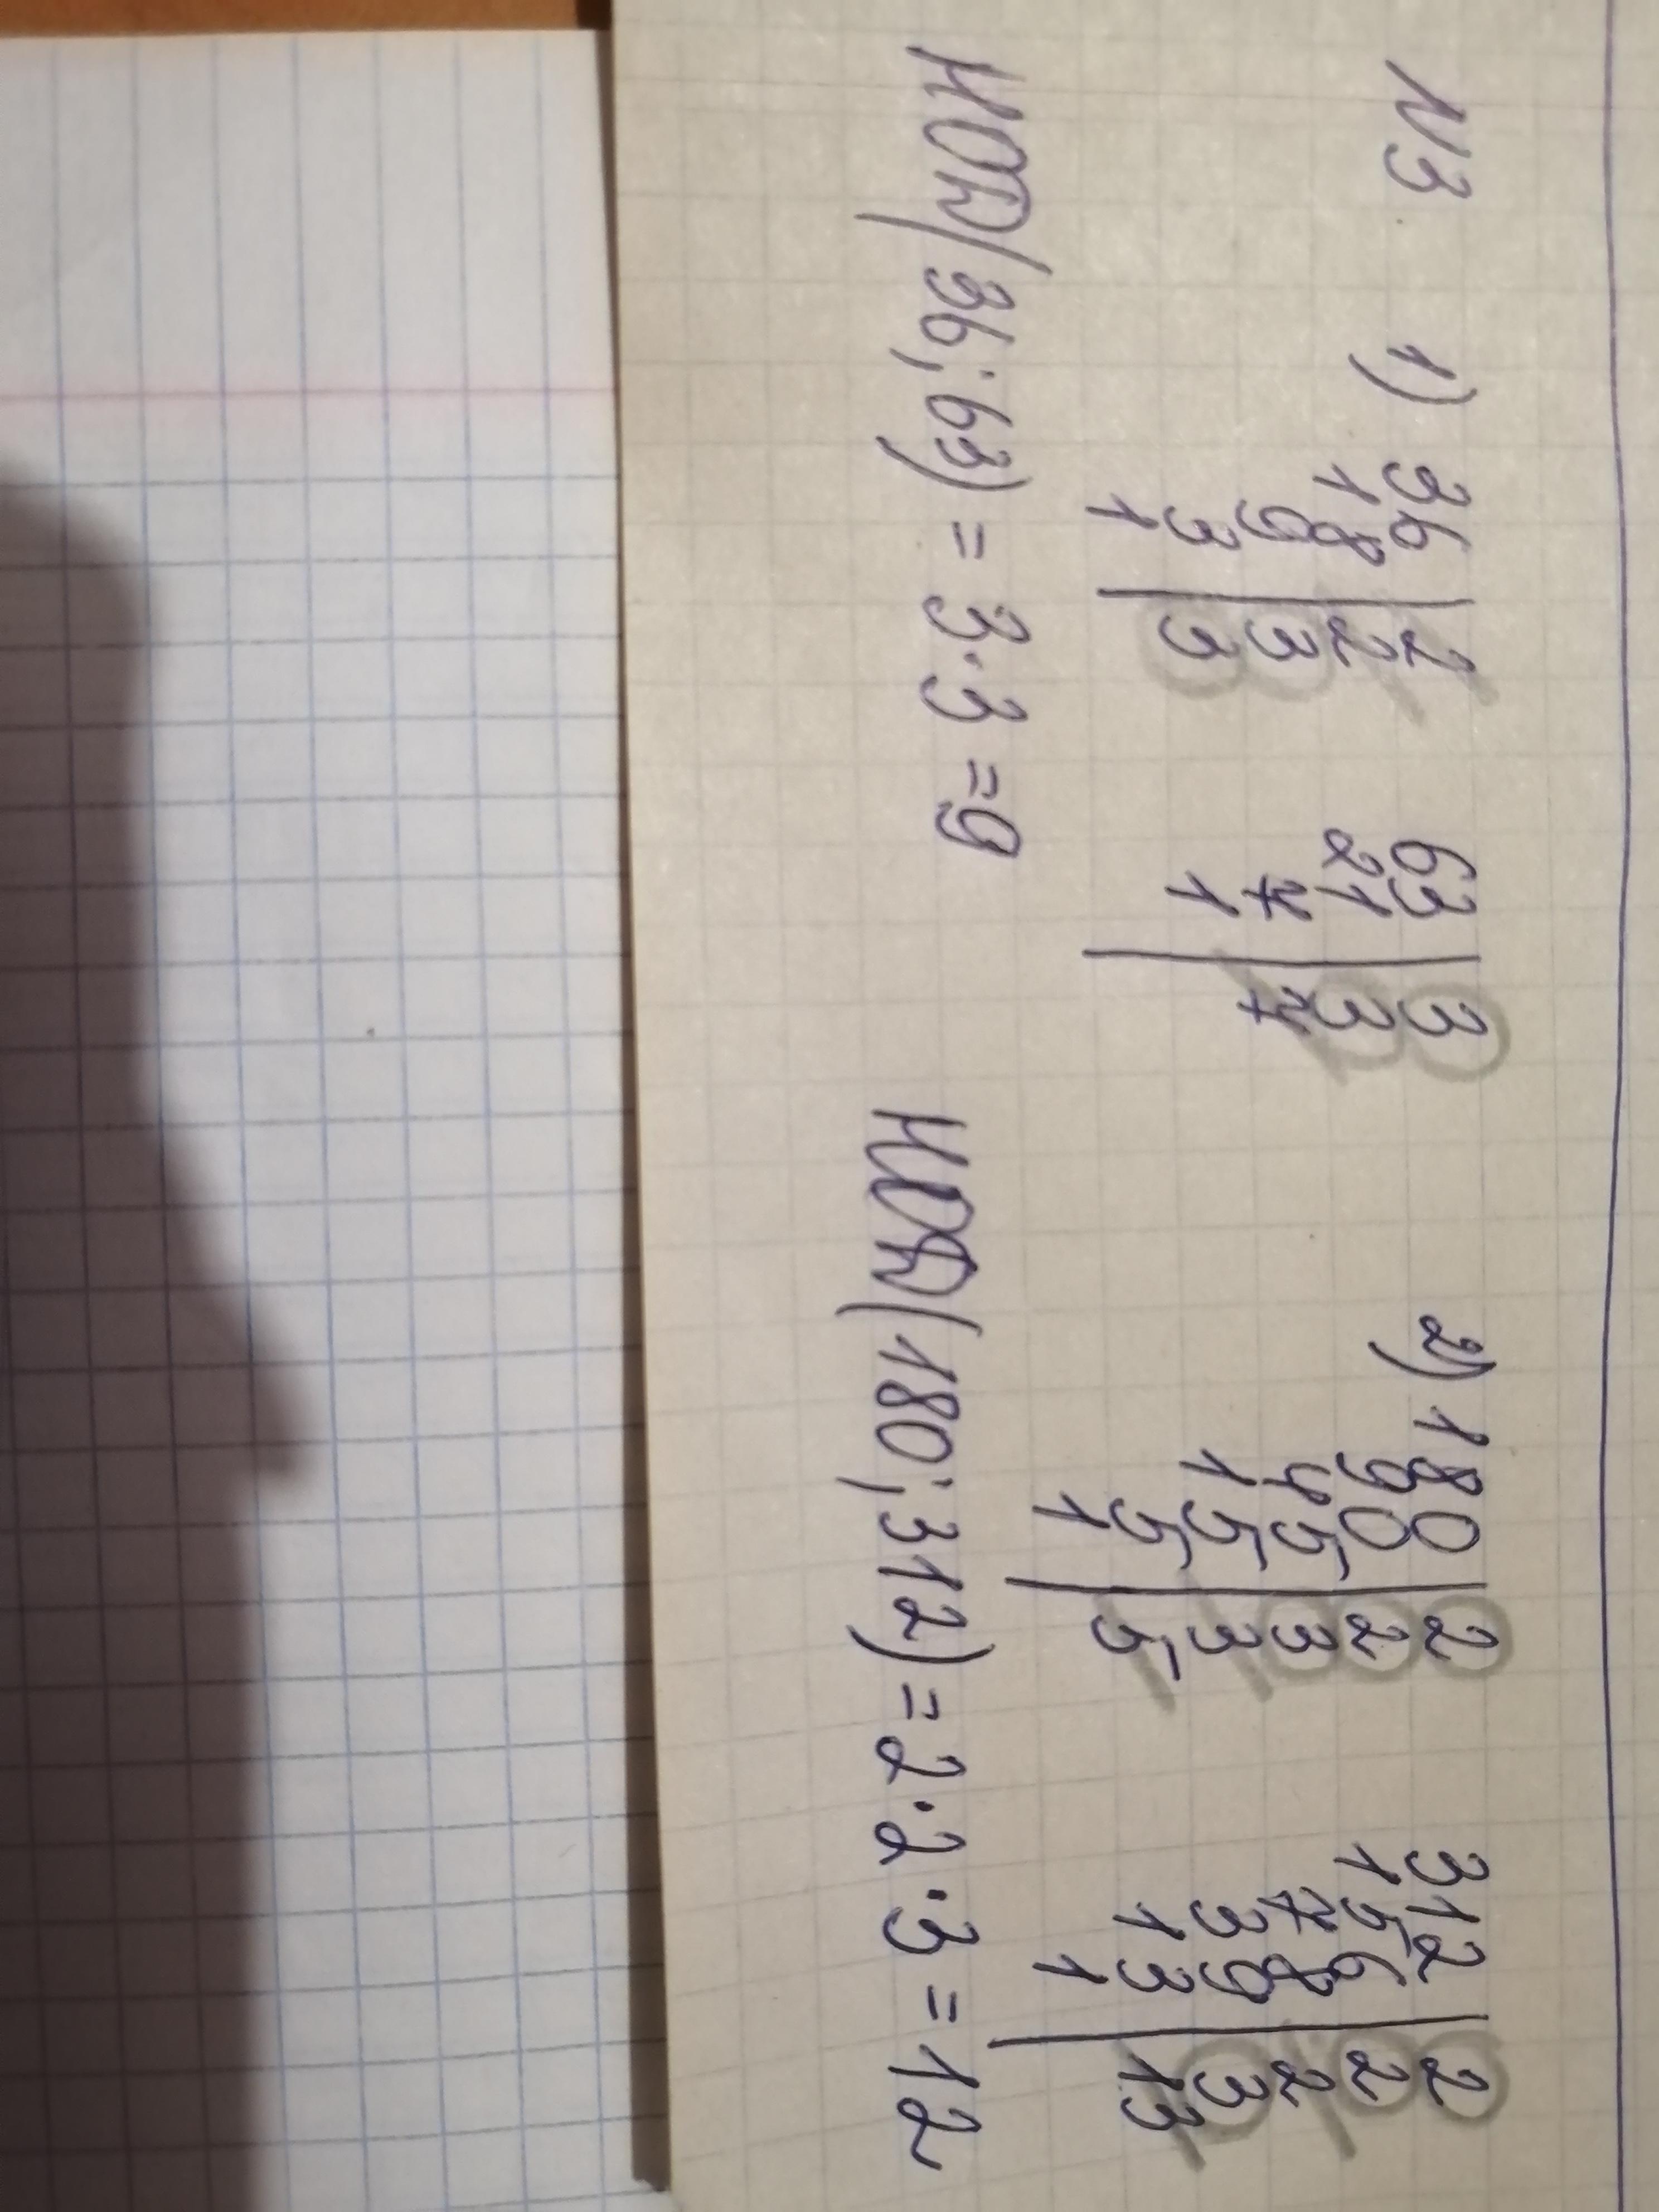 №3 1) 36 | 2 63 | 3 2) 180 | 2 312 | 2
18 | 2 21 | 3 90 | 2 156 | 2
9 | 3 7 | 7 45 | 3 78 | 2
3 | 3 1 15 | 3 39 | 3
1 5 | 5 13 | 13
1 1
НОД(36; 63) = 3·3 = 9 НОД(180; 312) = 2·2·3 = 12